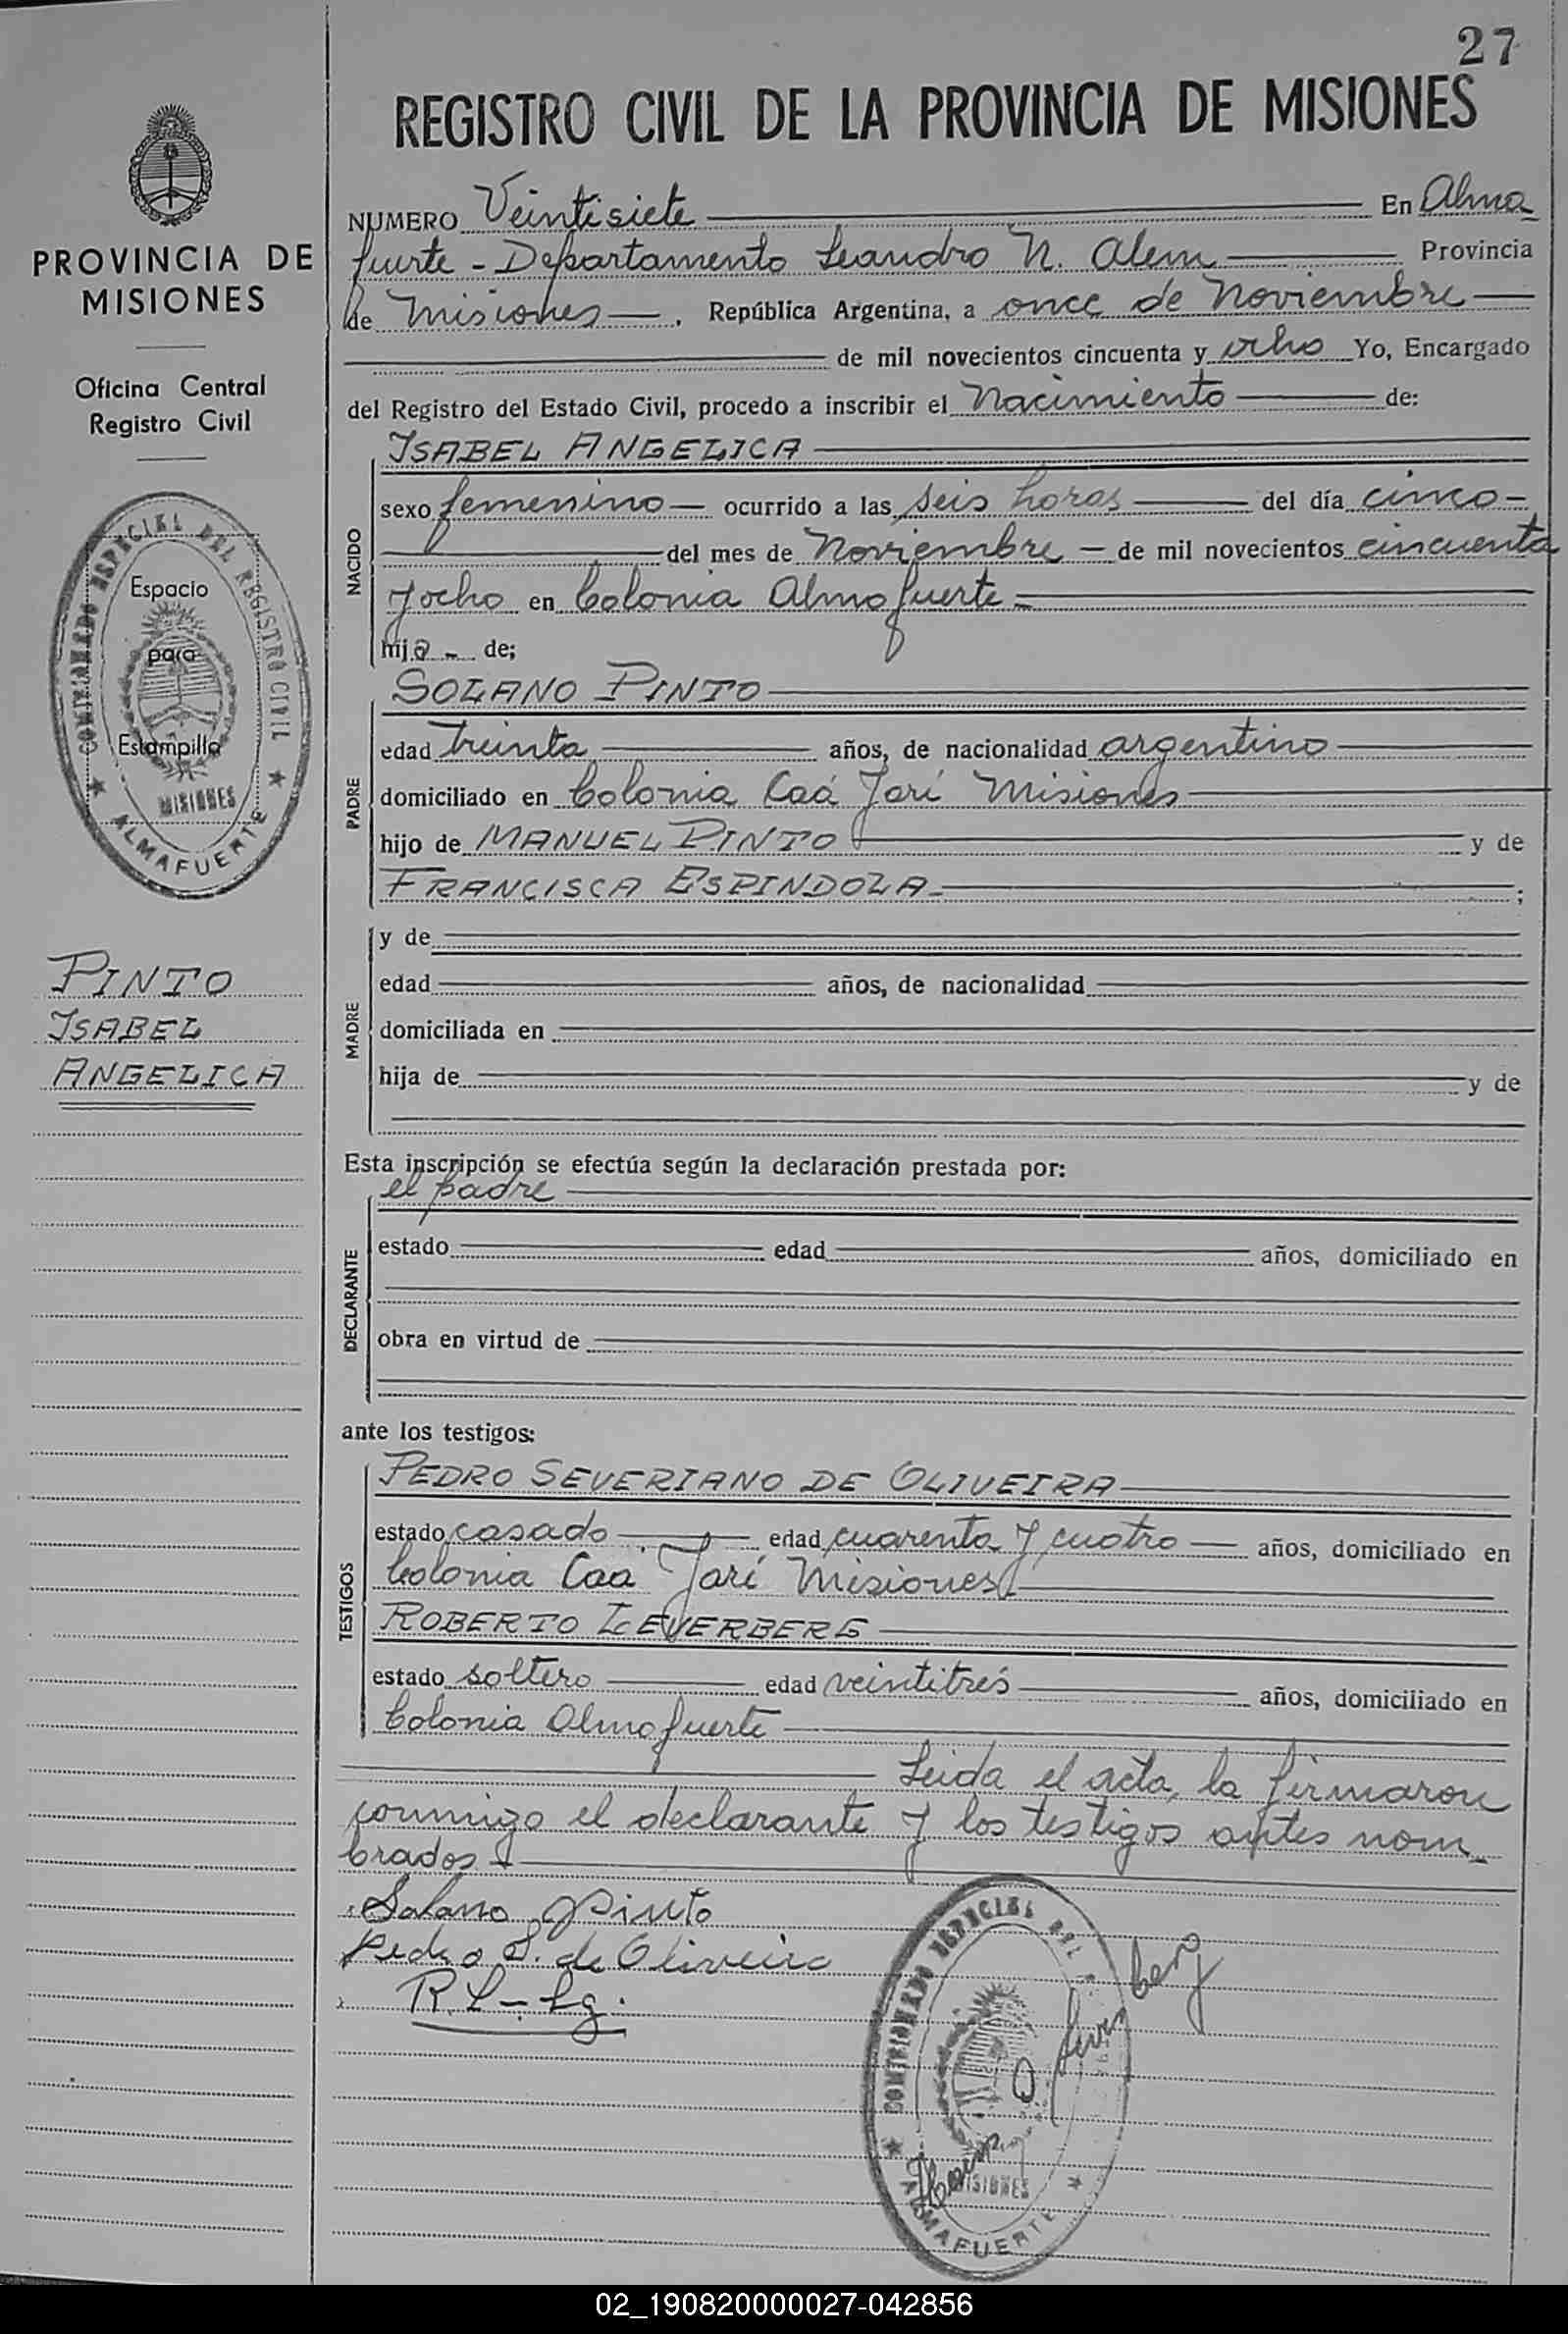 27
REGISTRO CIVIL DE LA PROVINCIA DE MISIONES
PROVINCIA DE
MISIONES
Oficina Central
Registro Civil
COMISIONADO ESPECIAL DEL REGISTRO CIVIL
Espacio
para
Estampilla
MISIONES
ALMAFUERTE
PINTO
ISABEL
ANGELICA
NUMERO Veintisiete En Alma
fuerte - Departamento Leandro N. Alem Provincia
de Misiones, República Argentina, a once de Noviembre
de mil novecientos cincuenta y ocho Yo, Encargado
del Registro del Estado Civil, procedo a inscribir el Nacimiento de:
NACIDO
ISABEL ANGELICA
sexo femenino ocurrido a las seis horas del día cinco
del mes de Noviembre de mil novecientos cincuenta
y ocho en Colonia Almafuerte
hija de;
PADRE
SOLANO PINTO
edad treinta años, de nacionalidad argentino
domiciliado en Colonia Caá Yarí Misiones
hijo de MANUEL PINTO y de
FRANCISCA ESPINDOLA ;
MADRE
y de
edad años, de nacionalidad
domiciliada en
hija de y de
Esta inscripción se efectúa según la declaración prestada por:
DECLARANTE
el padre
estado edad años, domiciliado en
obra en virtud de
ante los testigos:
TESTIGOS
PEDRO SEVERIANO DE OLIVEIRA
estado casado edad cuarenta y cuatro años, domiciliado en
Colonia Caa Yarí Misiones
ROBERTO LEVERBERG
estado soltero edad veintitrés años, domiciliado en
Colonia Almafuerte
Leida el acta, la firmaron
conmigo el declarante y los testigos antes nom-
brados
Solano Pinto
Pedro S. de Oliveira
R. L-Lg.
COMISIONADO ESPECIAL DEL
MISIONES
ALMAFUERTE
02_190820000027-042856